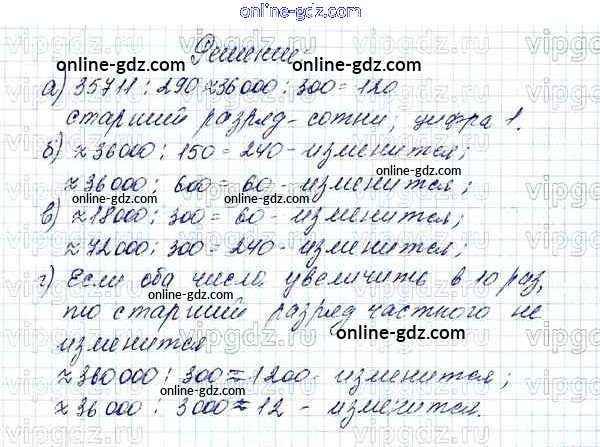 online-gdz.com
Решение
online-gdz.com
а) 35711 : 290 ≈ 36000 : 300 = 120
старший разряд - сотни; цифра 1.
online-gdz.com
б) ≈ 36000 : 150 = 240 - изменится;
online-gdz.com
≈ 36000 : 600 = 60 - изменится;
online-gdz.com
в) ≈ 18000 : 300 = 60 - изменится;
≈ 72000 : 300 = 240 - изменится;
online-gdz.com
г) Если оба числа увеличить в 10 раз,
online-gdz.com
то старший разряд частного не
online-gdz.com
изменится
online-gdz.com
≈ 360000 : 300 ≈ 1200 - изменится;
≈ 36000 : 3000 ≈ 12 - изменится.
online-gdz.com